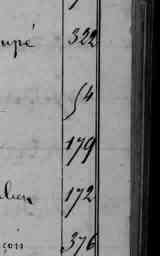 upé 322
54
179
172
çois 376